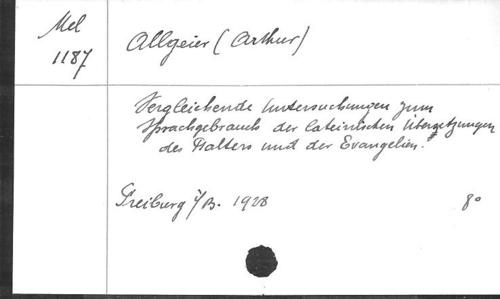 Mel
1187
Allgeier (Arthur)
Vergleichende Untersuchungen zum
Sprachgebrauch der lateinischen Übersetzungen
des Psalters und der Evangelien.
Freiburg i/B. 1928 8°